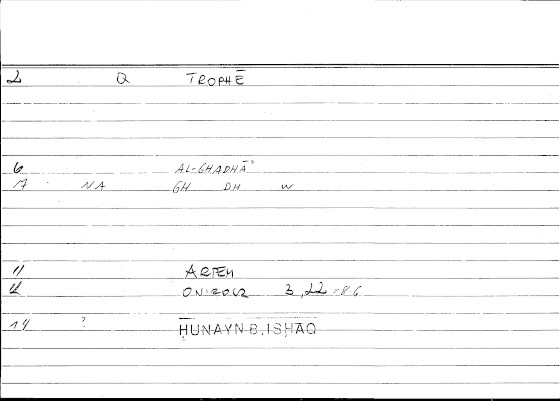 2 Q TROPHĒ
6 AL-GHADHĀ'
7 NA GH DH W
11 ARTEM
12 ONIROCR 3,22 = 86
14 ? ḤUNAYN B. ISḤĀQ